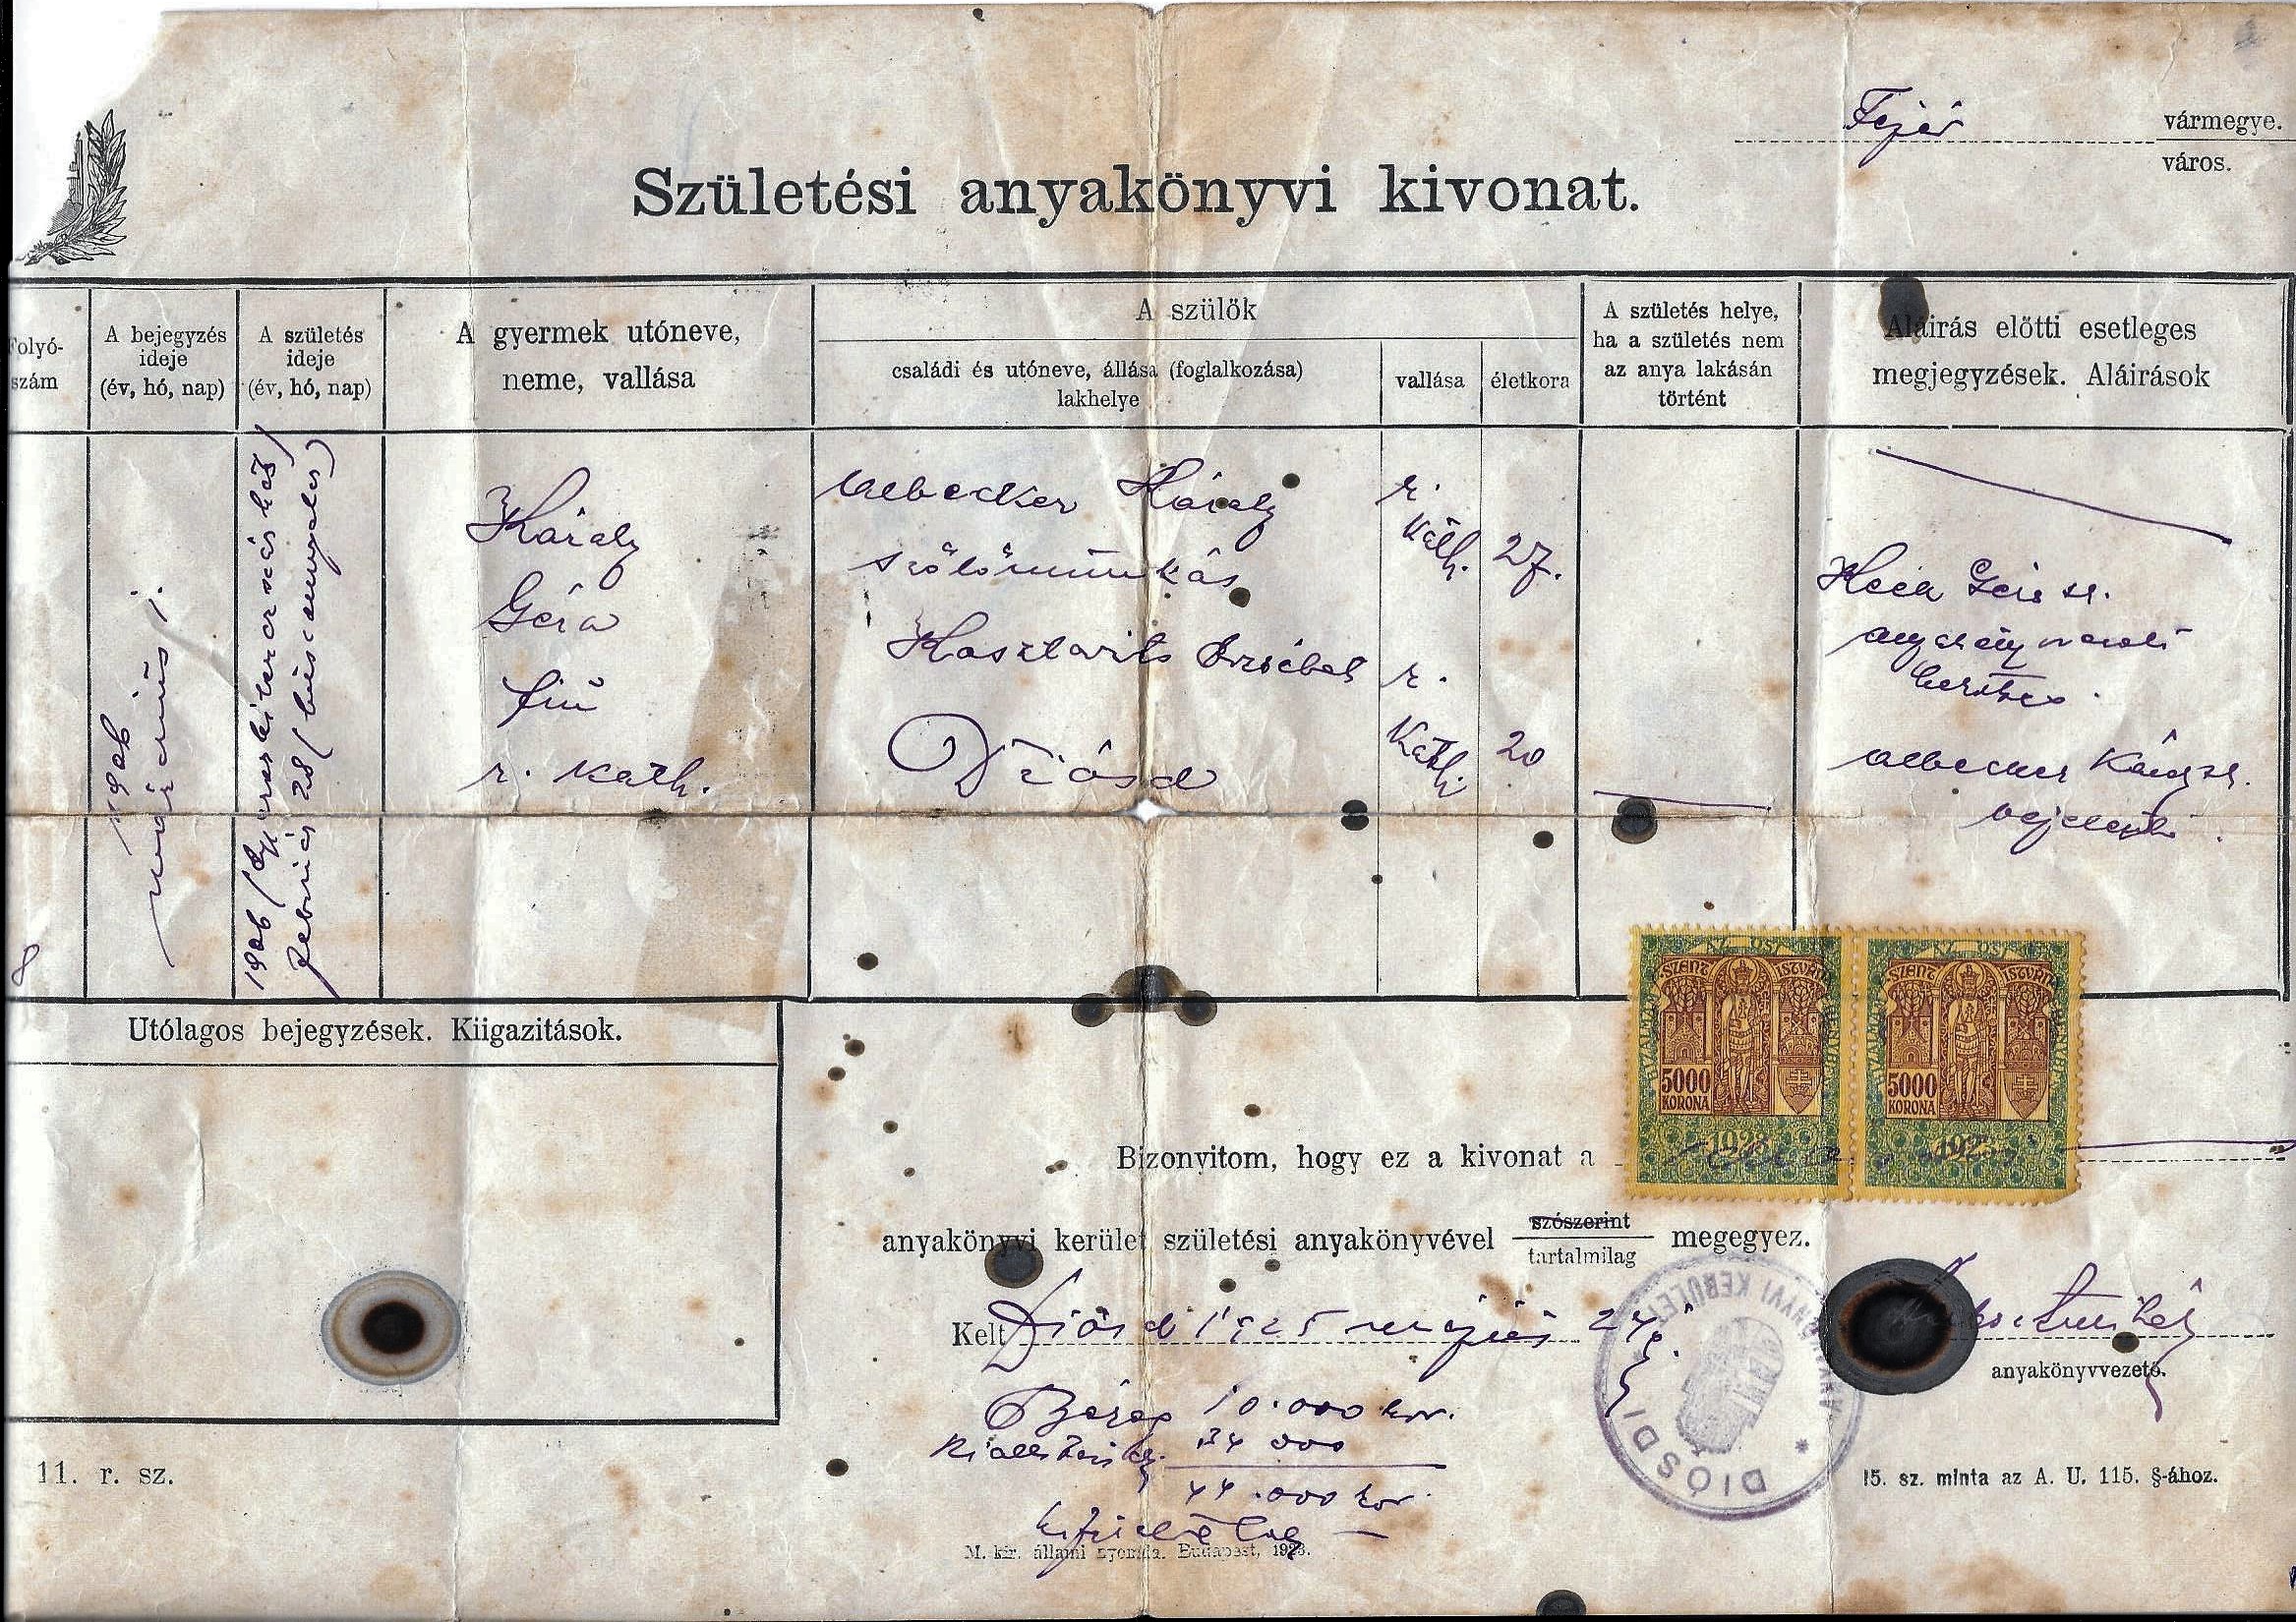 Fejér vármegye.
város.
Születési anyakönyvi kivonat.
Folyó-
szám
A bejegyzés
ideje
(év, hó, nap)
A születés
ideje
(év, hó, nap)
A gyermek utóneve,
neme, vallása
A szülők
családi és utóneve, állása (foglalkozása)
lakhelye
vallása
életkora
A születés helye,
ha a születés nem
az anya lakásán
történt
Aláirás előtti esetleges
megjegyzések. Aláirások
8
1906
március 1.
1906 (Egyezerkilencszázhat)
február 28 (huszonnyolc)
Károly
Géza
fiú
r. kath.
Albecker Károly
szőlőmunkás
Kosztovits Erzsébet
Diósd
r.
kath.
27.
r.
kath.
20
Géza sk.
Albecker Károly sk.
bejelentő.
Utólagos bejegyzések. Kiigazitások.
SZENT ISTVÁN
5000
KORONA
SZENT ISTVÁN
5000
KORONA
Bizonyitom, hogy ez a kivonat a
anyakönyvi kerület születési anyakönyvével szószerint
tartalmilag
megegyez.
Kelt Diósd 1925 május 24
anyakönyvvezető.
DIÓSDI ANYAKÖNYVI KERÜLET
Bélyeg 10.000 kor.
34 000
44.000 kor.
11. r. sz.
15. sz. minta az A. U. 115. §-ához.
M. kir. állami nyomda. Budapest, 1923.